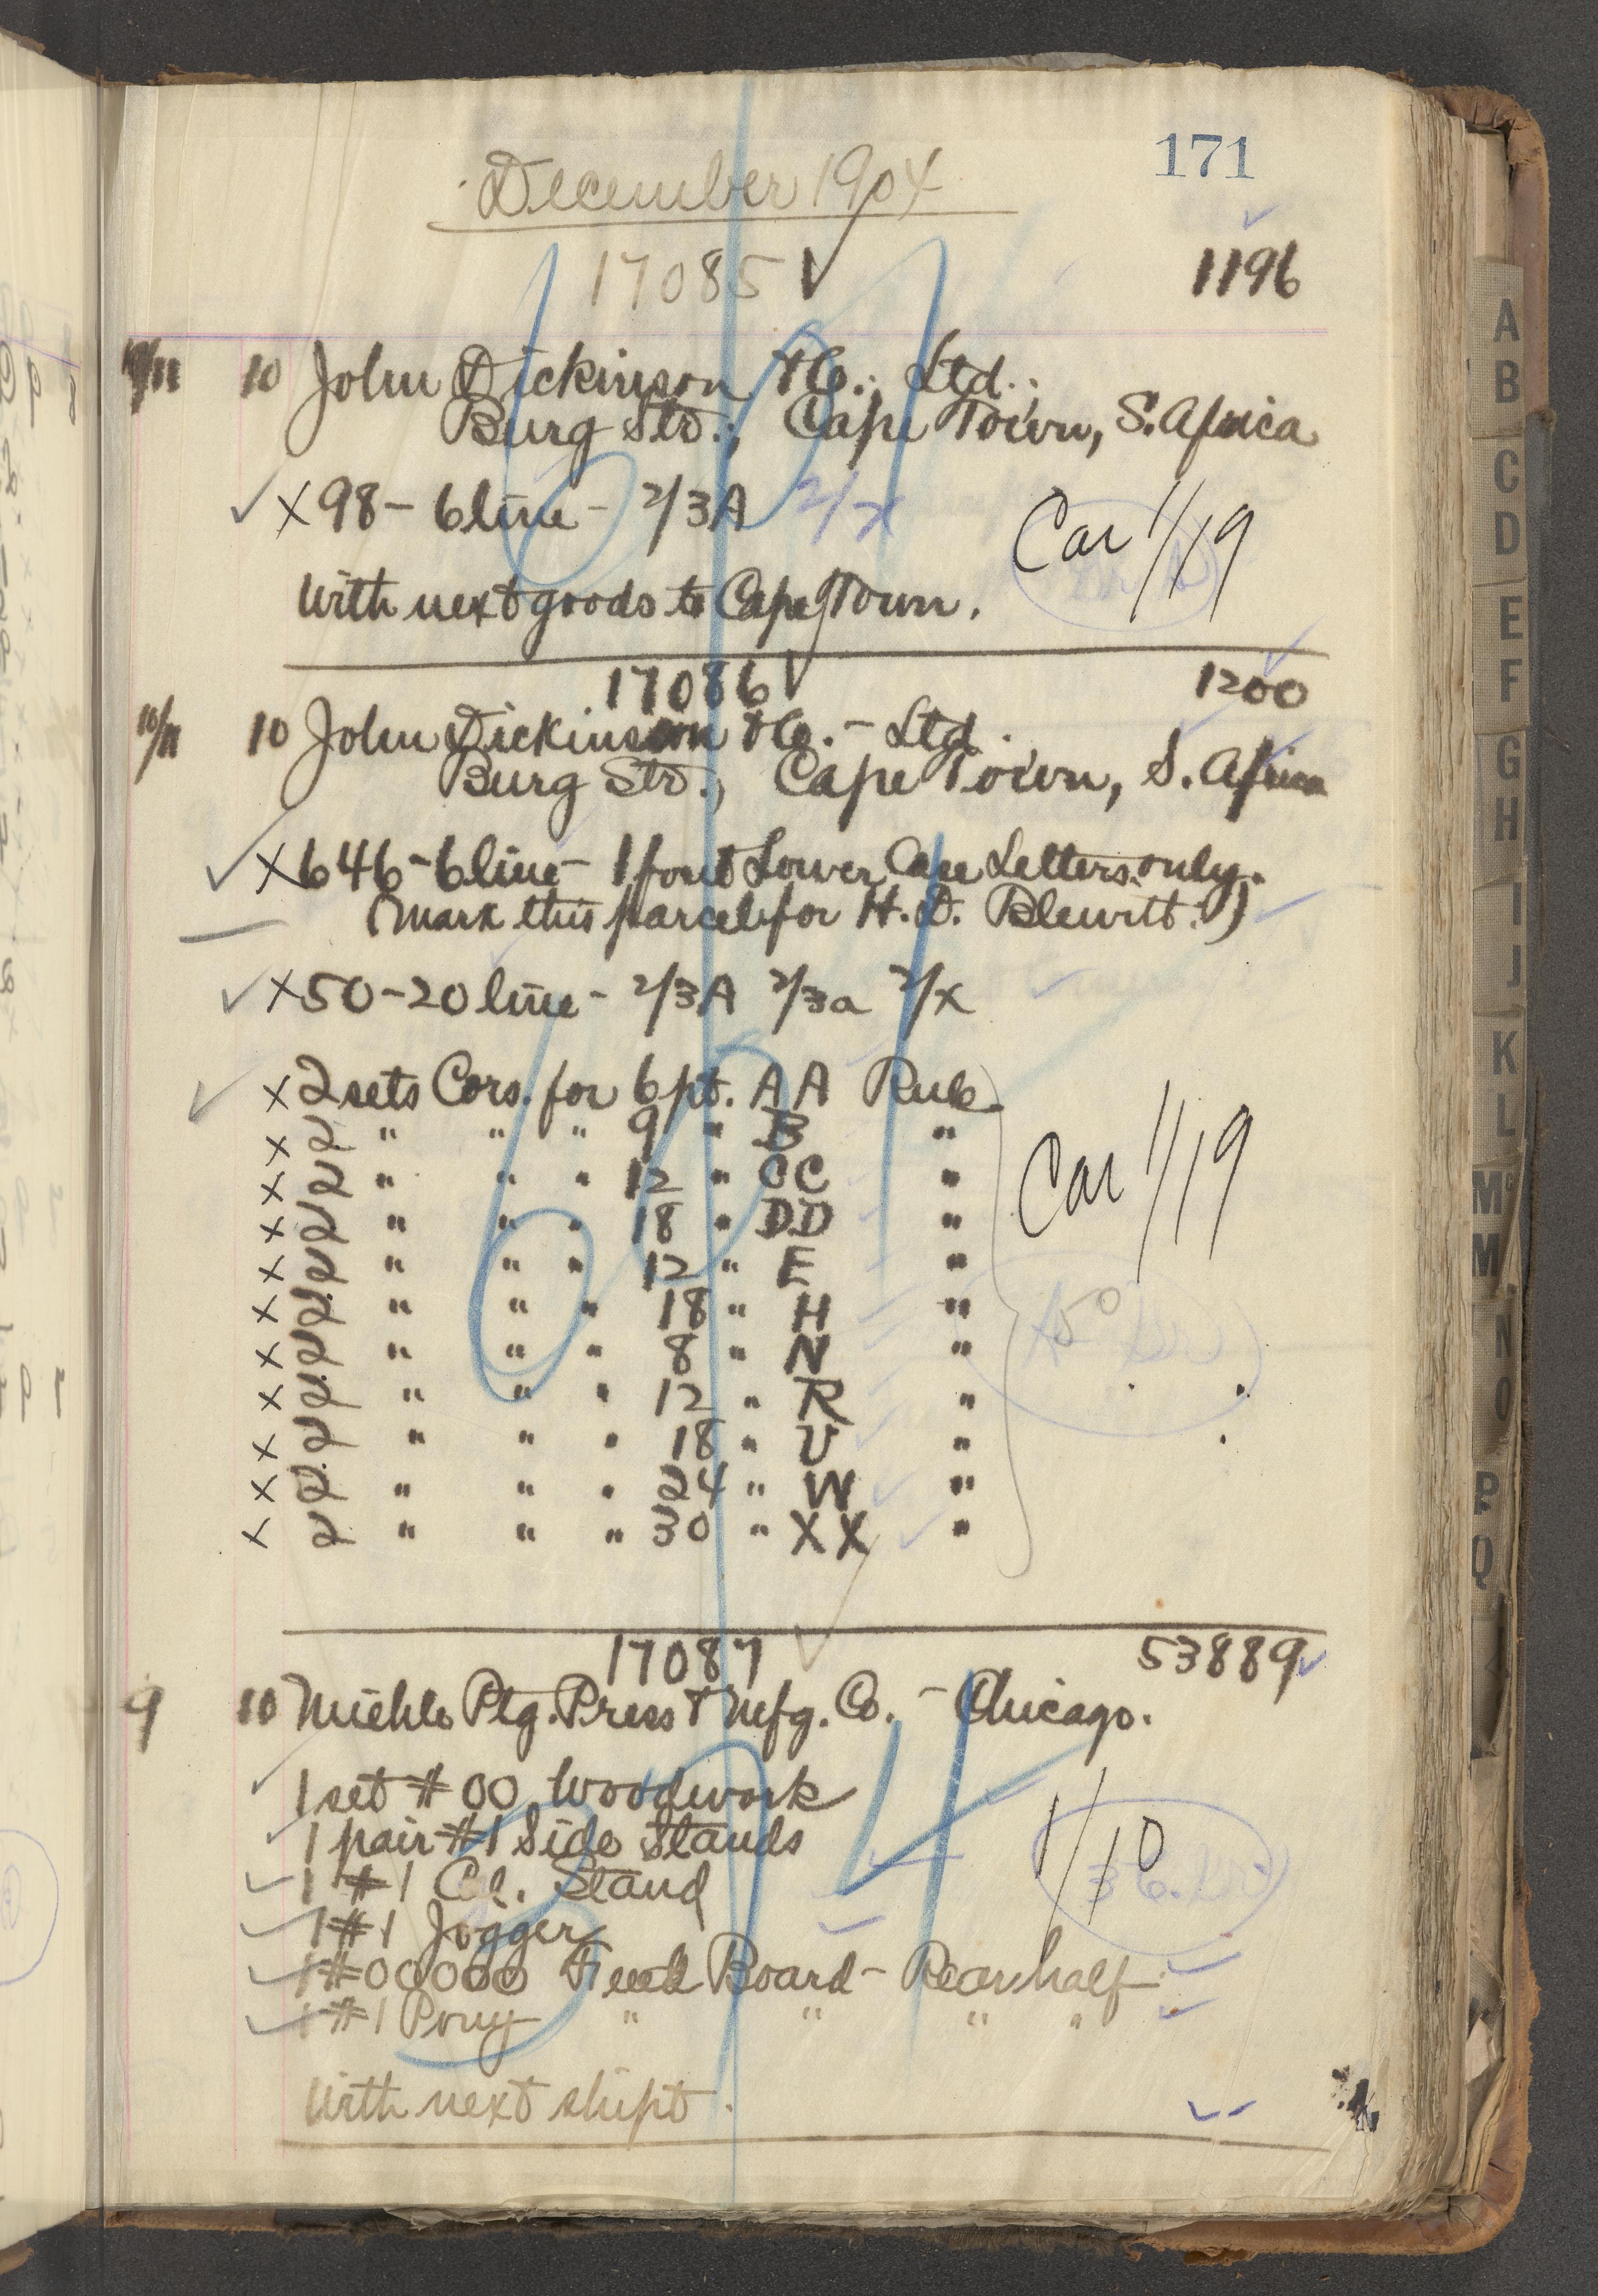 171
December 1904
17085 1196
10 John Dickinson & Co., Ltd.
Burg Str., Cape Town, S. Africa
x 98 - 6 line - 2/3A 2/x
Car 1/19
With next goods to Cape Town.
17086 1200
10/11 10 John Dickinson & Co. - Ltd.
Burg Str., Cape Town, S. Africa
x 646 - 6 line - 1 font Lower Case Letters only.
(Mark this parcel for H. D. Blewitt.)
x 50 - 20 line - 2/3A 2/3a 2/x
x 2 sets Cors. for 6 pt. AA Rule
x 2 " " " 9 " B "
x 2 " " " 12 " CC "
x 2 " " " 18 " DD "
Car 1/19
x 2 " " " 12 " E "
x 2 " " " 18 " H "
x 2 " " " 8 " N "
x 2 " " " 12 " R "
x 2 " " " 18 " U "
x 2 " " " 24 " W "
x 2 " " " 30 " XX "
17087 53889
9 10 Miehle Ptg. Press & Mfg. Co. - Chicago.
1 set #00 Woodwork
1 pair #1 Side Stands
1/10
1 #1 Cyl. Stand
1 #1 Jogger
1 #00000 Feed Board - Rear half
1 #1 Pony " " " "
With next shipt.
A
B
C
D
E
F
G
H
I
J
K
L
M
M
N
O
P
Q